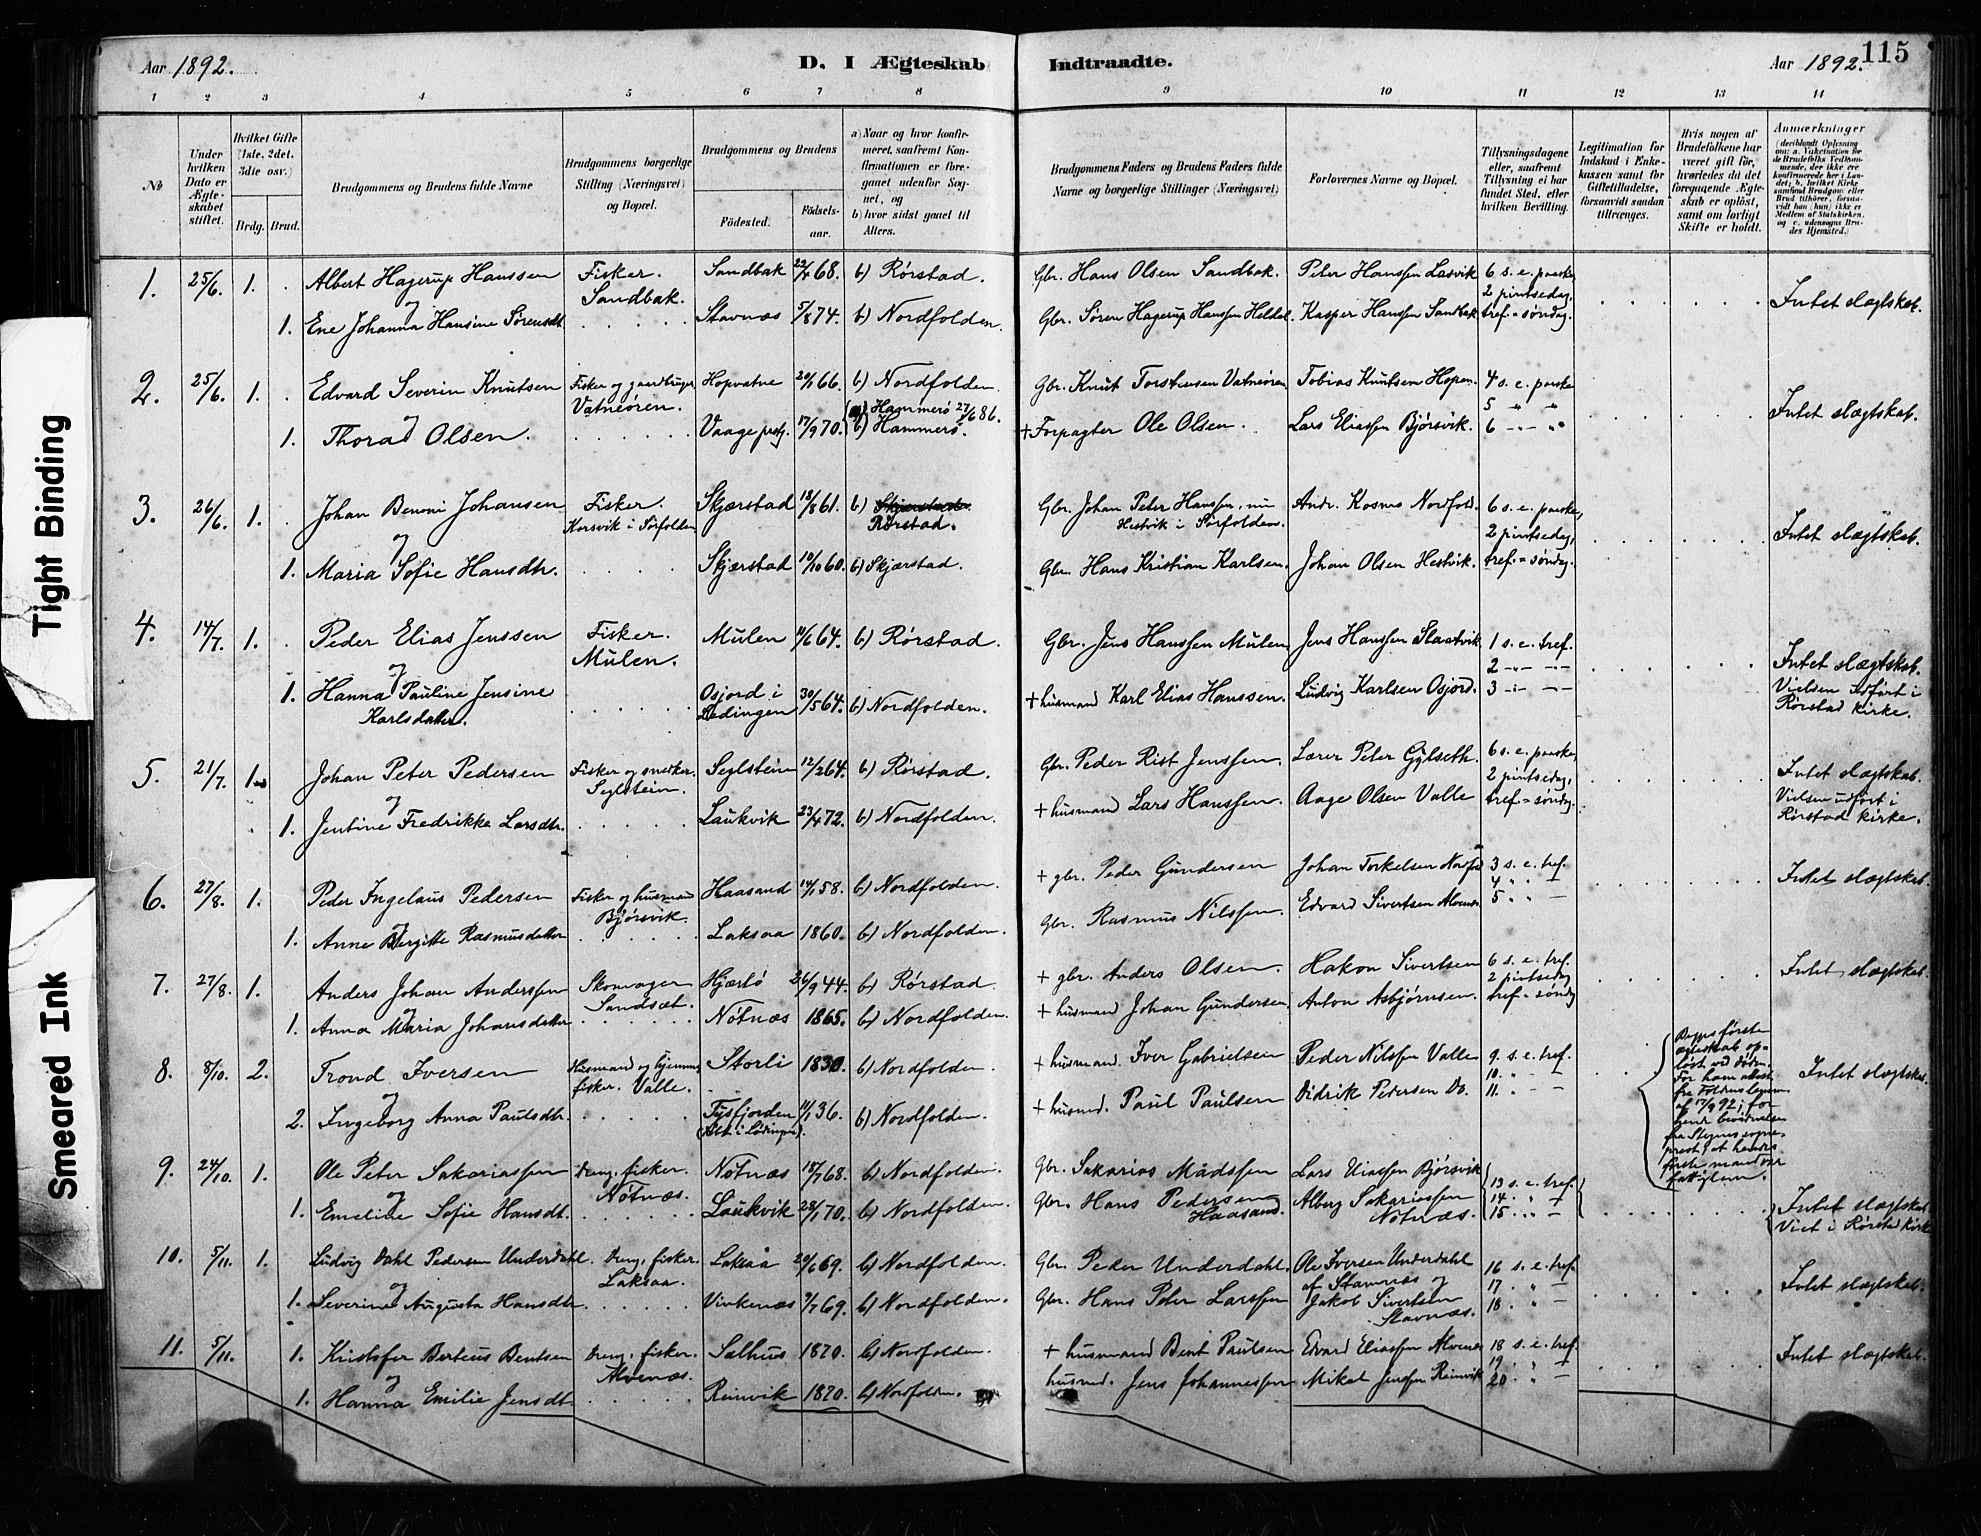 Aar 1892. D. I Ægteskab Indtraadte. Aar 1892. 115
1 2 3 4 5 6 7 8 9 10 11 12 13 14
No
Under hvilken Dato er Ægteskabet stiftet.
Hvilket Gifte (1ste, 2det, 3die osv.)
Brdg. Brud.
Brudgommens og Brudens fulde Navne
Brudgommens borgerlige Stilling (Næringsvei) og Bopæl.
Brudgommens og Brudens
Födested. Födsels-aar.
a) Naar og hvor konfirmeret, saafremt Konfirmationen er foregaaet udenfor Sognet, og
b) hvor sidst gaaet til Alters.
Brudgommens Faders og Brudens Faders fulde Navne og borgerlige Stillinger (Næringsvei)
Forlovernes Navne og Bopæl.
Tillysningsdagene eller, saafremt Tillysning ei har fundet Sted, efter hvilken Bevilling.
Legitimation for Indskud i Enkekassen samt for Giftetilladelse, forsaavidt saadan tiltrænges.
Hvis nogen af Brudefolkene har været gift för, hvorledes da det foregaaende Ægteskab er oplöst, samt om lovligt Skifte er holdt.
Anmærkninger
1. 25/6. 1. Albert Hagerup Hanssen Fisker. Sandbak. Sandbak 22/4 68. b) Rørstad. Gbr. Hans Olsen Sandbak. Peter Hanssen Løsvik 6 s. e. paaske,
og 2 pintsedag, Intet slægtskab.
1. Ene Johanna Hansine Sørensdt. Stavnæs 5/8 74. b) Nordfolden. Gbr. Søren Hagerup Hanssen Heldal. Kasper Hanssen Sandbak tref. = søndag.
2. 25/6. 1. Edvard Severin Knutsen Fisker og gaardbruger Vatneøren. Hopvatne 20/1 66. b) Nordfolden. Gbr. Knut Torstensen Vatneøren. Tobias Knutsen Hopen. 4 s. e. paaske
og a) Hammerø 27/6 86. 5 " " Intet slægtskab.
1. Thora Olsen. Vaage prstg. 17/9 70. b) Hammerø. + Forpagter Ole Olsen. Lars Eliassen Bjørsvik. 6 - " - " "
3. 26/6. 1. Johan Benoni Johansen Fisker. Korsvik i Sørfolden Skjærstad 18/8 61. b) Rørstad. Gbr. Johan Peter Hanssen, nu Hestvik i Sørfolden. Andr. Kosmo Nordfold. 6 s. e. paaske,
og 2 pintsedag, Intet slægtskab.
1. Maria Sofie Hansdtr. Skjærstad 10/10 60. b) Skjærstad. Gbr. Hans Kristian Karlsen. Johan Olsen Hestvik. tref. = søndag.
4. 14/7. 1. Peder Elias Jenssen Fisker. Mulen. Mulen 11/6 64. b) Rørstad. Gbr. Jens Hanssen Mulen Jens Hanssen 1 s. e. tref.
og 2 - " - - " - Intet slægtskab.
1. Hanna Pauline Jensine Karlsdatter. Osjord i Lødingen 30/5 64. b) Nordfolden. + husmand Karl Elias Hanssen. Ludvig Karlsen Osjord. 3 - " - - Vielsen udført i Rørstad kirke.
5. 21/7. 1. Johan Peter Pedersen Fisker og snedker. Seglstein. Seglstein 12/2 64. b) Rørstad. Gbr. Peder Rist Jenssen. Lærer Peter Gylseth. 6 s. e. paaske,
og 2 pintsedag, Intet slægtskab.
1. Jentine Fredrikke Larsdtr. Laukvik 23/4 72. b) Nordfolden. + husmand Lars Hanssen. Aage Olsen Valle tref. = søndag. Vielsen udført i Rørstad kirke.
6. 27/8. 1. Peder Ingelaus Pedersen Fisker og husmand Bjørsvik. Haasand 14/1 58. b) Nordfolden. + gbr. Peder Gundersen Johan Torkelsen 3 s. e. tref.
og 4 " " - Intet slægtskab.
1. Anne Bergitte Rasmusdatter Laksaa 1860. b) Nordfolden. Gbr. Rasmus Nilssen. Edvard Sivertsen 5 " " -
7. 27/8. 1. Anders Johan Anderssen Skomager Sandsæt. Hjertø 26/9 44. b) Rørstad. + gbr. Anders Olsen. Hakon Sivertsen 6 s. e. tref.
og 2 pintsedag Intet slægtskab.
1. Anna Maria Johansdatter Nøtnæs 1865. b) Nordfolden. + husmand Johan Gundersen. Anton Asbjørnsen. tref. = søndag
8. 8/10. 2. Trond Iversen Husmand og hjemme fisker. Valle. Storli 1830. b) Nordfolden. + husmand. Iver Gabrielsen Peder Nilssen Valle 9 s. e. tref. Begges første ægteskab opløst ved døden.
og 10. " - Intet slægtskab.
2. Ingeborg Anna Paulsdtr. Tysfjorden 11/1 36. b) Nordfolden. + husmd. Paul Paulsen Didrik Pedersen Do. 11. " - -
9. 24/10. 1. Ole Peter Sakariassen Dreng, fisker. Nøtnæs. Nøtnæs 18/7 68. b) Nordfolden. Gbr. Sakarias Madssen Lars Eliassen Bjørsvik 13 s. e. tref.
og 14. " -
1. Emeline Sofie Hansdt. Laukvik 28/1 70. b) Nordfolden. Gbr. Hans Pedersen Haasand. Alberg Sakariassen Nøtnæs. 15. " - Intet slægtskab. Viet i Rørstad kirke
10. 5/11. 1. Ludvig Dahl Pedersen Underdahl. Dreng, fisker. Laksaa. Laksaa 20/6 69. b) Nordfolden. Gbr. Peder Underdahl. Ole Iversen Underdahl af Stamnæs og 16 s. e. tref.
og 17. " - Intet slægtskab.
1. Severine Augusta Hansdtr Vinkenæs 7/7 69. b) Nordfolden. Gbr. Hans Peter Larssen Jakob Sivertsen Stavnæs. 18. " -
11. 5/11. 1. Kristofer Berteus Bentsen Dreng, fisker. Alvenæs. Salhus 1870. b) Nordfolden. + husmand Bent Paulsen Edvard Eliassen Alvenæs 18 s. e. tref.
og 19. " - Intet slægtskab.
1. Hanna Emilie Jensdt. Reinvik 1870. b) Nordfolden. husmd. Jens Johannessen Mikal Jenssen Reinvik 20. " -
Tight Binding
Smeared Ink